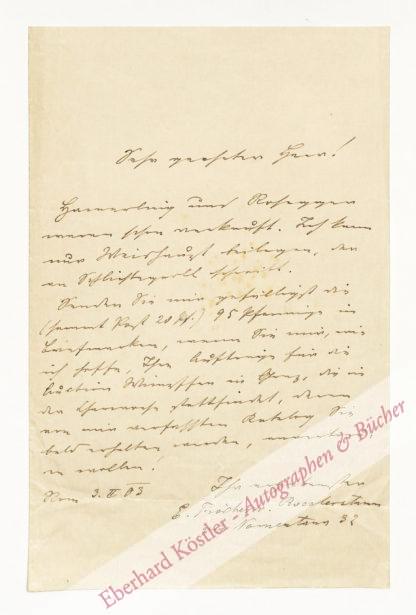 Sehr geehrter Herr!
Hamerling und Rosegger
waren schon verkauft. Ich kann
nur Weishaupt beilegen, der
an Schlichtegroll schreibt.
Senden Sie mir gefälligst die
(sammt Post 20 Pf.) 95 Pfennige in
Briefmarken, wenn Sie mir, wie
ich hoffe, Ihre Aufträge für die
Auction Wimpffen in Graz, die in
der Charwoche stattfindet, deren
von mir verfassten Katalog Sie
bald erhalten werden,
zu wollen!
Rom 3. II 03
Ihr
E. Fischer v. Roeslerstamm
Nomentana 32
Eberhard Köstler - Autographen & Bücher